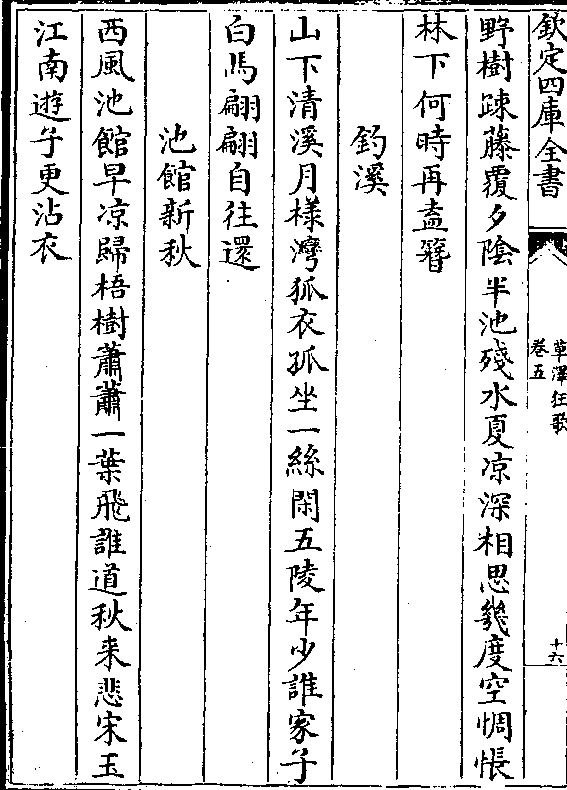 欽定四庫全書
草澤狂歌
卷五
十六
野樹踈藤覆夕隂半池殘水夏凉深相思幾度空惆悵
林下何時再盍簮
釣溪
山下清溪月樣灣狐衣孤坐一絲閑五陵年少誰家子
白馬翩翩自往還
池館新秋
西風池館早凉歸梧樹蕭蕭一葉飛誰道秋来悲宋玉
江南遊子更沾衣